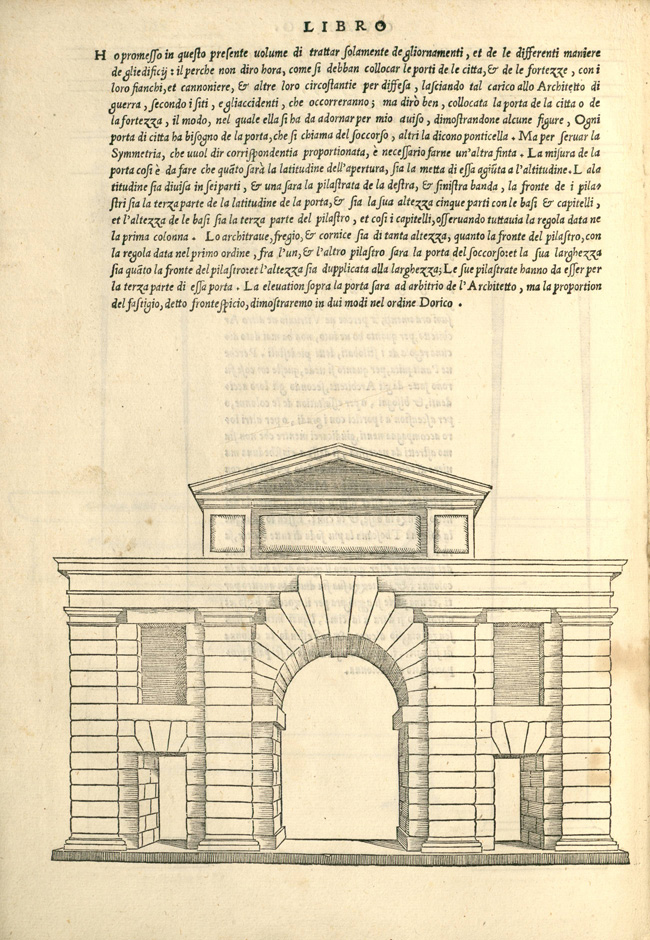 LIBRO
Ho promesso in questo presente uolume di trattar solamente de gliornamenti, et de le differenti maniere
de gliedificij: il perche non diro hora, come si debban collocar le porti de le citta, & de le fortezze, con i
loro fianchi, et cannoniere, & altre loro circostantie per diffesa, lasciando tal carico allo Architetto di
guerra, secondo i siti, e gliaccidenti, che occorreranno; ma dirò ben, collocata la porta de la citta o de
la fortezza, il modo, nel quale ella si ha da adornar per mio auiso, dimostrandone alcune figure, Ogni
porta di citta ha bisogno de la porta, che si chiama del soccorso, altri la dicono ponticella. Ma per seruar la
Symmetria, che uuol dir corrispondentia proportionata, è necessario farne un'altra finta. La misura de la
porta cosi è da fare che quãto sarà la latitudine dell'apertura, sia la metta di essa agiũta a l'altitudine. L ala
titudine sia diuisa in sei parti, & una sara la pilastrata de la destra, & sinistra banda, la fronte de i pila=
stri sia la terza parte de la latitudine de la porta, & sia la sua altezza cinque parti con le basi & capitelli,
et l'altezza de le basi sia la terza parte del pilastro, et cosi i capitelli, osseruando tuttauia la regola data ne
la prima colonna. Lo architraue, fregio, & cornice sia di tanta altezza, quanto la fronte del pilastro, con
la regola data nel primo ordine, fra l'un, & l'altro pilastro sara la porta del soccorso: et la sua larghezza
sia quãto la fronte del pilastro: et l'altezza sia dupplicata alla larghezza; Le sue pilastrate hanno da esser per
la terza parte di essa porta. La eleuation sopra la porta sara ad arbitrio de l'Architetto, ma la proportion
del fastigio, detto frontespicio, dimostraremo in dui modi nel ordine Dorico.